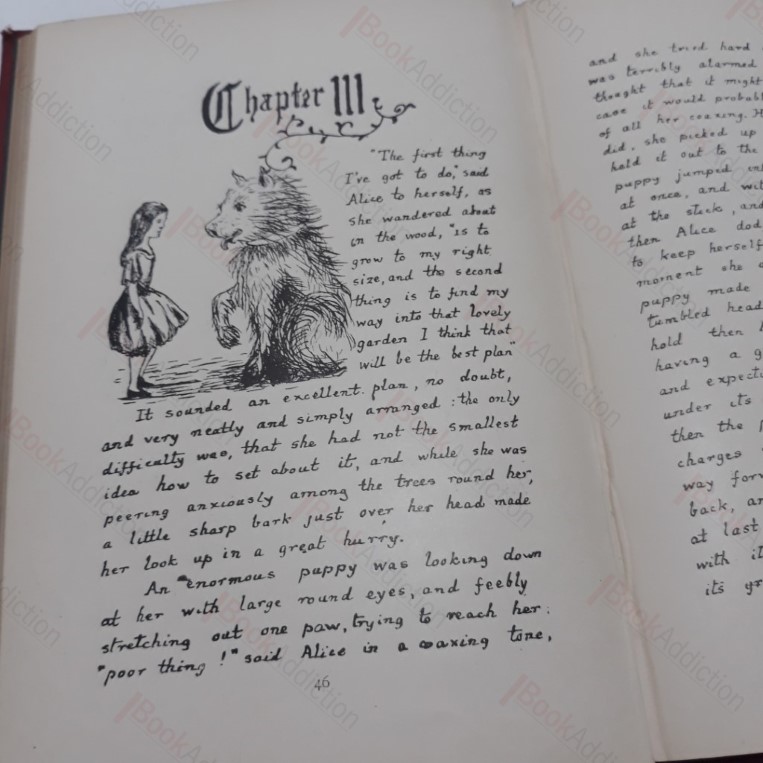 Chapter III
"The first thing
I've got to do," said
Alice to herself, as
she wandered about
in the wood, "is to
grow to my right
size, and the second
thing is to find my
way into that lovely
garden I think that
will be the best plan"
It sounded an excellent plan, no doubt,
and very neatly and simply arranged: the only
difficulty was, that she had not the smallest
idea how to set about it, and while she was
peering anxiously among the trees round her,
a little sharp bark just over her head made
her look up in a great hurry.
An enormous puppy was looking down
at her with large round eyes, and feebly
stretching out one paw, trying to reach her:
"poor thing!" said Alice in a coaxing tone,
46
and she tried hard
was terribly alarmed
thought that it might
case it would
of all her coaxing.
did, she picked up
held it out to the
puppy jumped
at once, and
at the stick, and
then Alice
to keep herself
moment she
puppy made
tumbled head
hold then
having a
and
under its
then the
charges
way
back,
at last
with
its
BookAddiction